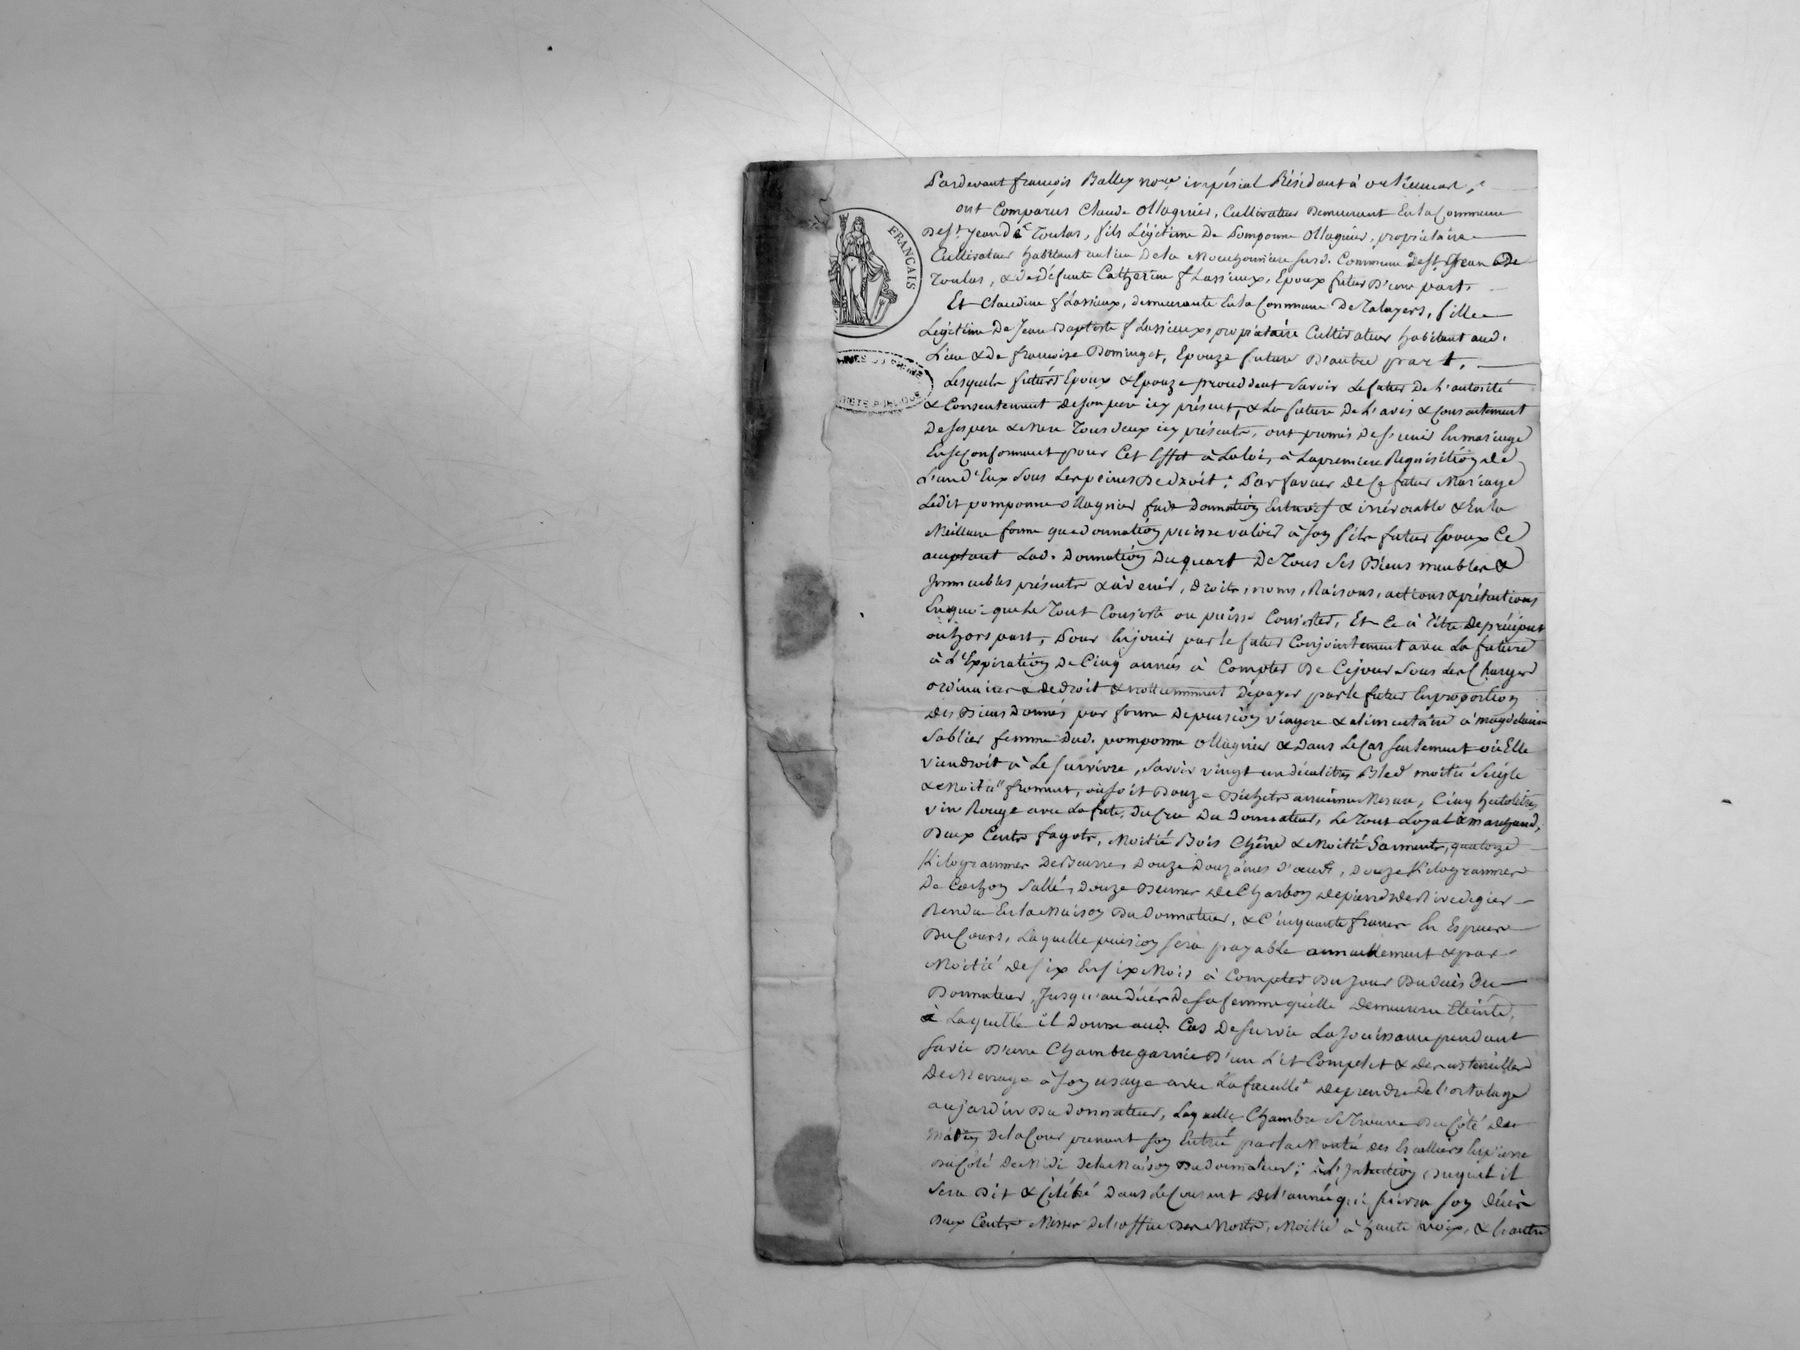 FRANÇAIS
Pardevant françois Balley no.re impérial Résidant à
ont Comparus Claude Ollagnier, Cultivateur Demeurant En la Commune
De St. Jean de Toulas, fils Légitime De Pomponne Ollagnier, propriétaire
Cultivateur habitant au lieu De la Mouchonniere susd. Commune De St. Jean De
Toulas, & de Défunte Catherine flassieux, Epoux futur D'une part
Et Claudine flassieux, demeurante En la Commune De Taluyers, fille
Légitime De Jean Baptiste flassieux propriétaire Cultivateur habitant aud.
Lieu & De françoise Dominget, Epouze future D'autre part.
Lesquels futurs Epoux & Epouze procédent savoir Le futur De L'autorité
& Consentement De son pere icy présent, & La future De L'avis & Consentement
De ses pere & Mere Tous deux icy présents, ont promis De s'unir En mariage
En se Conformant pour Cet Effet à La loi, à La premiere Réquisition de
L'un d'Eux sous Les peines De droit. En faveur De Ce futur Mariage
Ledit pomponne Ollagnier fait Donnation Entrevif & irrévocable & En la
Meilleure forme que donnation puisse valoir à son fils futur Epoux Ce
acceptant Lad. Donnation Du quart De Tous Ses Biens meubles &
Immeubles présents & à venir, Droits, noms, Raisons, actions & prétentions
En quoi que Le Tout Consiste ou puisse Consister, Et Ce à titre De préciput
ou hors part, Pour En jouir par le futur Conjointement avec La future
à L'Expiration De Cinq années à Compter De Ce jour sous Les Charges
ordinaires & de droit & nottamment De payer par le futur En proportion
Des Biens Donnés par forme De pension viagere & alimentaire à magdelaine
Sablier femme Dud. pomponne Ollagnier & Dans Le Cas seulement où Elle
viendroit à Le survivre, savoir vingt un décalitres Bled moitié Seigle
& Moitié froment, ou soit Douze Bichets ancienne Mesure, Cinq hectolitres
vin Rouge avec La fute, Du Cru Du Donnateur, Le Tout Loyal & marchand,
Deux Cents fagots, Moitié Bois Chêne & Moitié Sarments, quatorze
Kilogrammes De Beurre, Douze Douzaines d'œufs, Douze Kilogrammes
De Cochon Sallé, Douze Bennes De Charbon De pierre De Rivedegier
Rendu En la Maison Du Donnateur, & Cinquante francs En Especes
Du Cours, Laquelle pension sera payable annuellement & par
Moitié de six En six Mois à Compter Du Jour Du décès Du
Donnateur, Jusqu'au Décès De sa femme qu'elle Demeurera Eteinte,
à Laquelle il Donne aud. Cas De survie La Jouissance pendant
sa vie D'une Chambre garnie D'un Lit Complet & Des ustencilles
De Menage à son usage avec La faculté De prendre De L'ortolage
au jardin Du Donnateur, Laquelle Chambre se Trouve Du Coté De
Matin De la Cour prenant son Entrée par la Montée des Escalliers En pierre
Du Coté De Midi De la Maison Du Donnateur; à L'intention Duquel il
sera Dit & Célébré Dans Le Courant De l'année qui suivra son Décès
Deux Cents Messes De l'office Des Morts, Moitié à haute voix, & L'autre